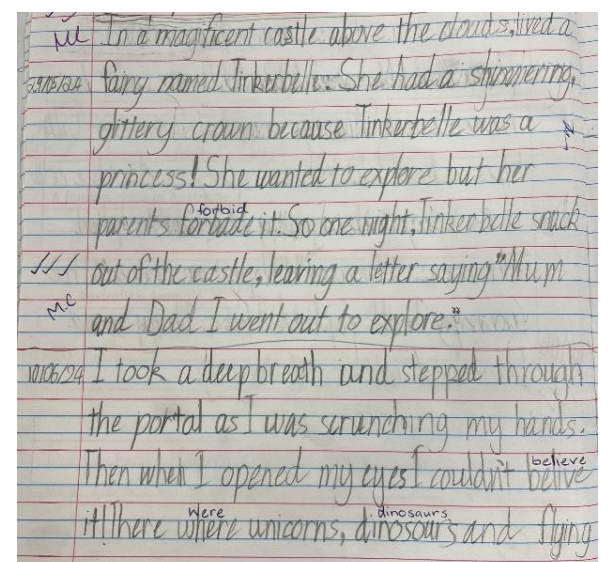 ML In a magificent castle above the clouds, lived a
29/5/24 fairy named Tinkerbelle. She had a shimmering,
glittery crown because Tinkerbelle was a
princess! She wanted to explore but her
forbid
parents forbade it. So one night, Tinkerbelle snuck
out of the castle, leaving a letter saying "Mum
M.C and Dad I went out to explore."
10/06/24 I took a deep breath and stepped through
the portal as I was scrunching my hands.
believe
Then when I opened my eyes I couldn't belive
were dinosaurs
it! There where unicorns, dinosours and flying